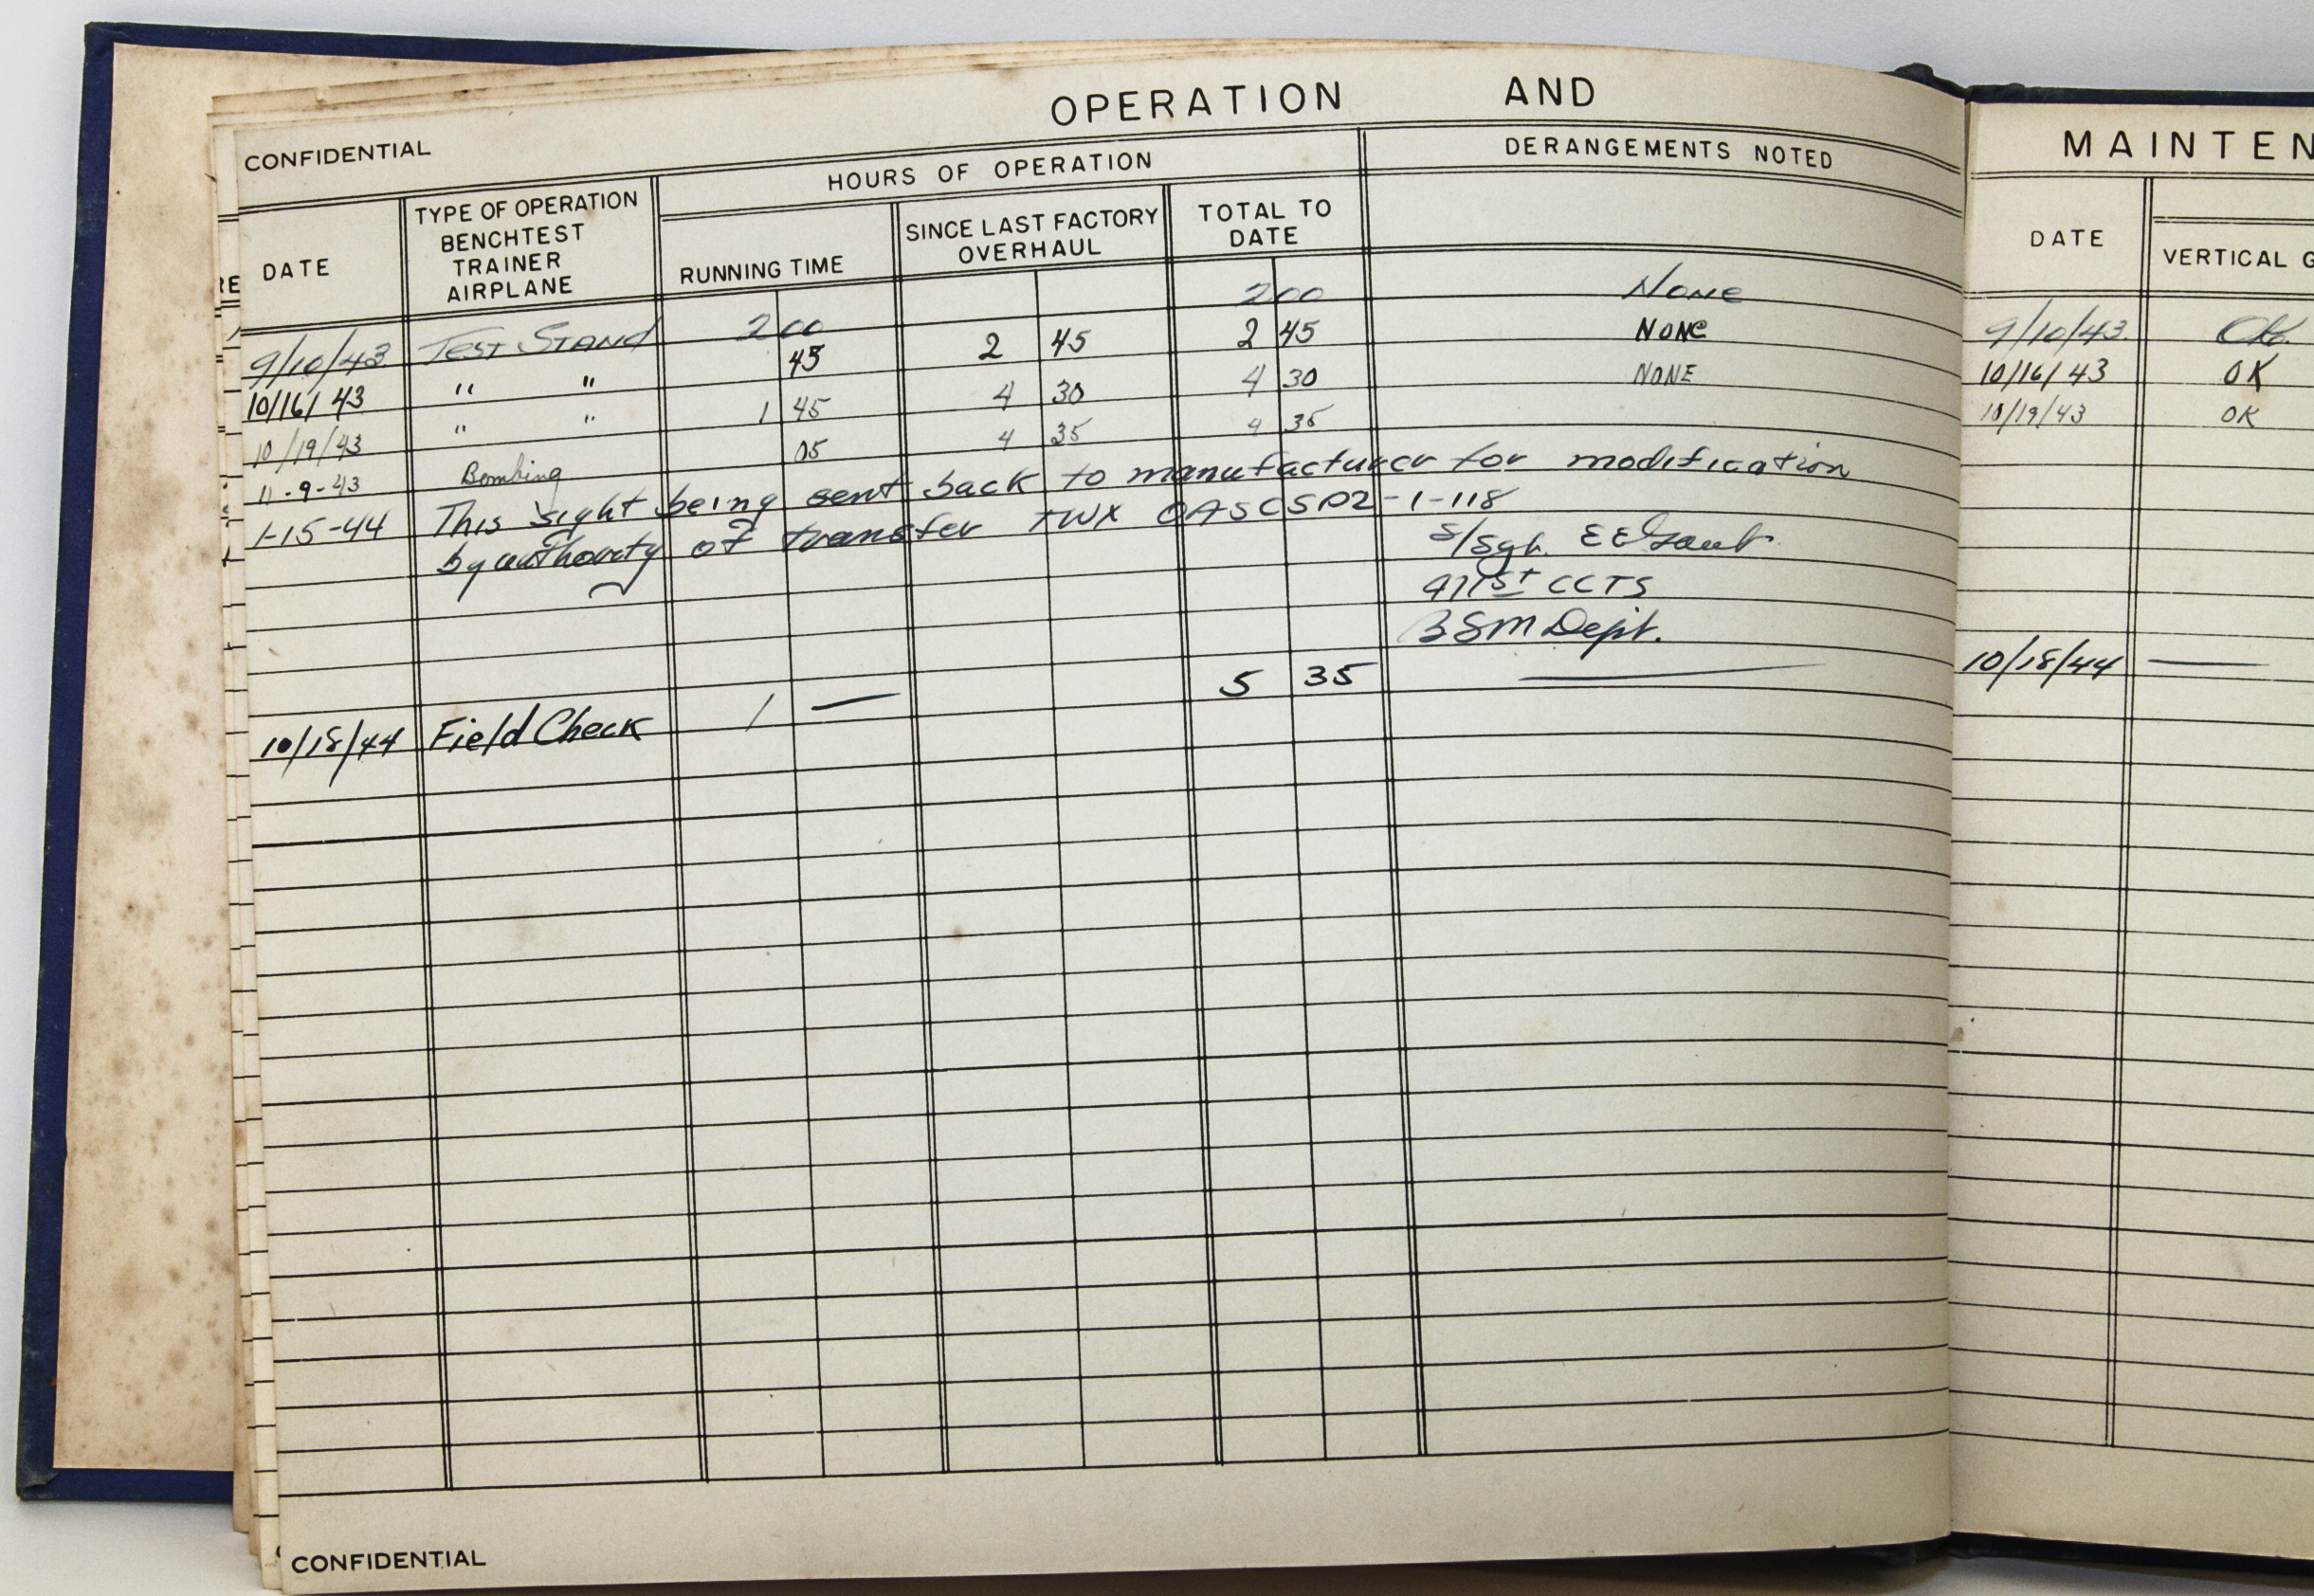 OPERATION AND
CONFIDENTIAL
HOURS OF OPERATION
DERANGEMENTS NOTED
DATE
TYPE OF OPERATION
BENCHTEST
TRAINER
AIRPLANE
RUNNING TIME
SINCE LAST FACTORY
OVERHAUL
TOTAL TO
DATE
9/10/43 TEST STAND 2 00 2 00 NONE
10/16/43 " " 45 2 45 2 45 NONE
10/19/43 " " 1 45 4 30 4 30 NONE
11-9-43 Bombing 05 4 35 4 35
1-15-44 This sight being sent back to manufacturer for modification
by authority of transfer TWX -1-118
S/Sgt. E E
471st CCTS
BSM Dept.
10/18/44 Field Check 1 — 5 35 —
CONFIDENTIAL
MAINTEN
DATE
VERTICAL G
9/10/43. Ok.
10/16/43 OK
10/19/43 OK
10/18/44 —
RE